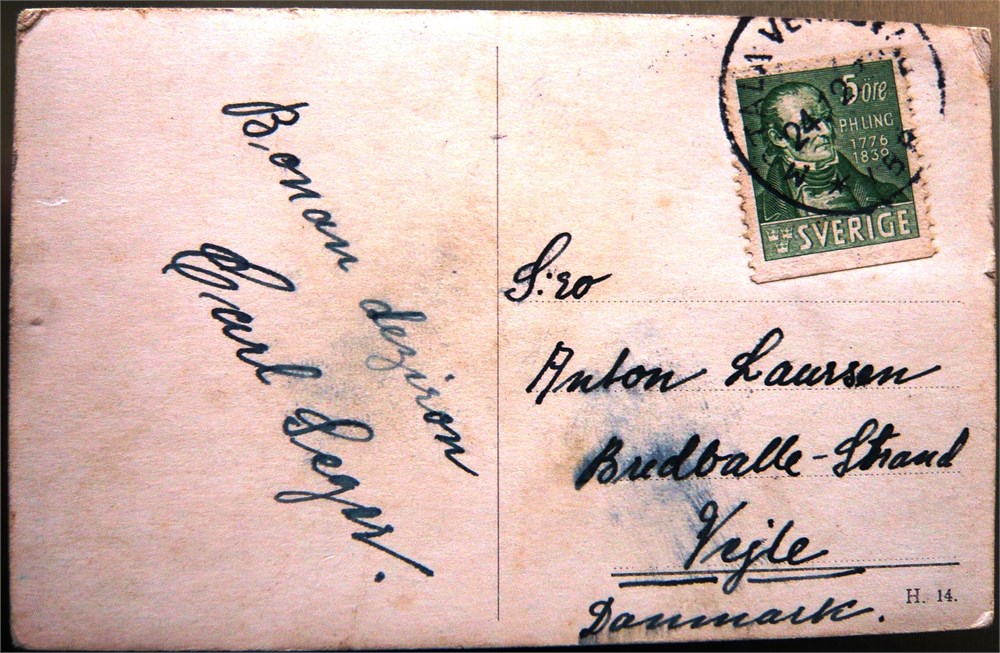 Bonan
deziron
Carl Seger.
S:ro
Anton Laursen
Bredballe-Strand
Vejle
Danmark.
H. 14.
5 öre
PH LING
1776
1839
SVERIGE
24